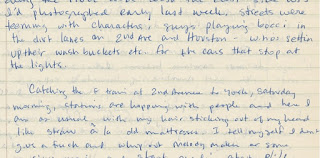 I'd photographed early last week, streets were
teeming with characters, guys playing bocci in
the dirt lanes on 2nd Ave and Houston - winos settin
up their wash buckets etc. for the cars that stop at
the lights.
Catching the F train at 2nd Avenue to York, Saturday
morning, stations are hopping with people and here I
am as usual with my hair sticking out of my head
like straw à la old mattress. I tell myself I don't
give a fuck and why not melody maker or some